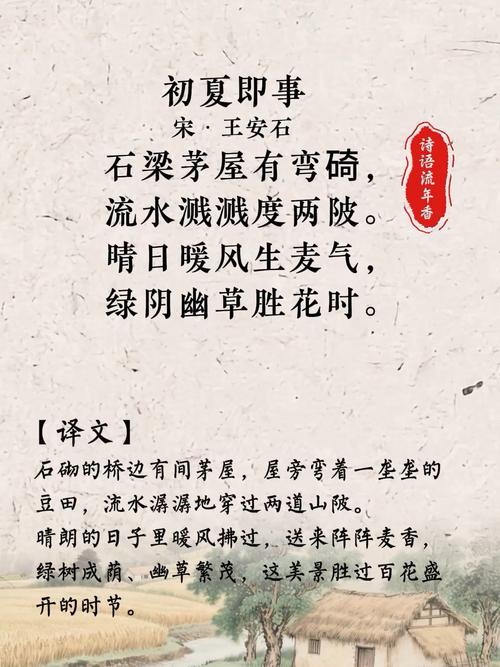 初夏即事
宋·王安石
石梁茅屋有弯碕，
流水溅溅度两陂。
晴日暖风生麦气，
绿阴幽草胜花时。
诗语流年香
【译文】
石砌的桥边有间茅屋，屋旁弯着一垄垄的
豆田，流水潺潺地穿过两道山陂。
晴朗的日子里暖风拂过，送来阵阵麦香，
绿树成荫、幽草繁茂，这美景胜过百花盛
开的时节。